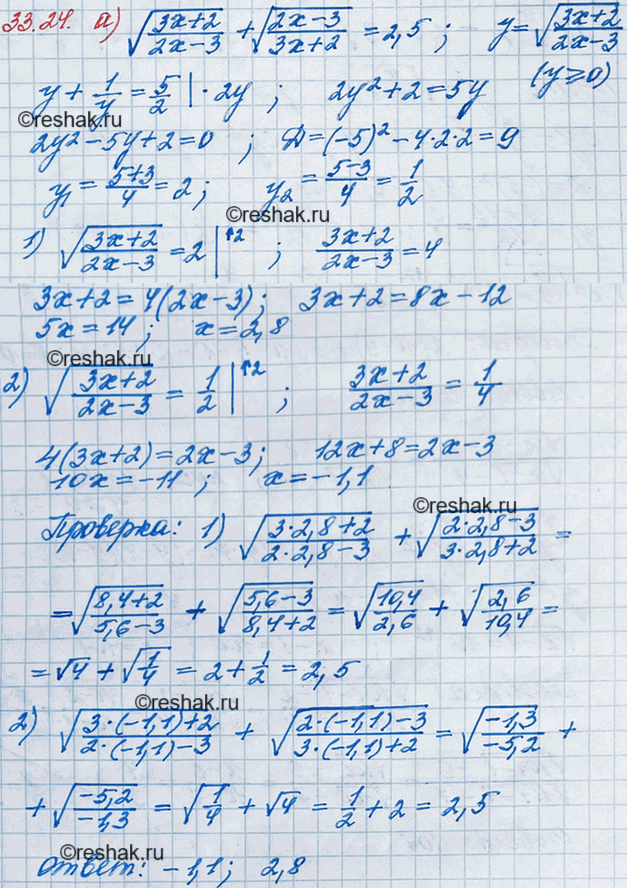 33.24. а) √((3x+2)/(2x-3)) + √((2x-3)/(3x+2)) = 2,5 ; y = √((3x+2)/(2x-3))
y + 1/y = 5/2 | · 2y ; 2y² + 2 = 5y (y ≥ 0)
©reshak.ru
2y² - 5y + 2 = 0 ; D = (-5)² - 4·2·2 = 9
y₁ = (5+3)/4 = 2 ; y₂ = (5-3)/4 = 1/2
©reshak.ru
1) √((3x+2)/(2x-3)) = 2 |↑2 ; (3x+2)/(2x-3) = 4
3x+2 = 4(2x-3) ; 3x+2 = 8x-12
5x = 14 ; x = 2,8
©reshak.ru
2) √((3x+2)/(2x-3)) = 1/2 |↑2 ; (3x+2)/(2x-3) = 1/4
4(3x+2) = 2x-3 ; 12x+8 = 2x-3
10x = -11 ; x = -1,1
©reshak.ru
Проверка: 1) √((3·2,8+2)/(2·2,8-3)) + √((2·2,8-3)/(3·2,8+2)) =
= √((8,4+2)/(5,6-3)) + √((5,6-3)/(8,4+2)) = √(10,4/2,6) + √(2,6/10,4) =
= √4 + √(1/4) = 2 + 1/2 = 2,5
2) √((3·(-1,1)+2)/(2·(-1,1)-3)) + √((2·(-1,1)-3)/(3·(-1,1)+2)) = √(-1,3/-5,2) +
+ √(-5,2/-1,3) = √(1/4) + √4 = 1/2 + 2 = 2,5
©reshak.ru
ответ: -1,1; 2,8